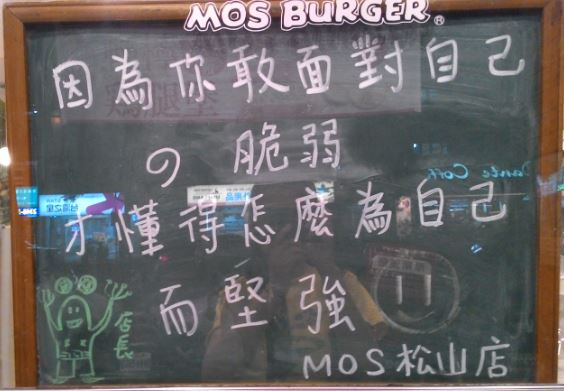 MOS BURGER®
因為你敢面對自己
の 脆弱
才懂得怎麼為自己
而堅強
店長
MOS松山店